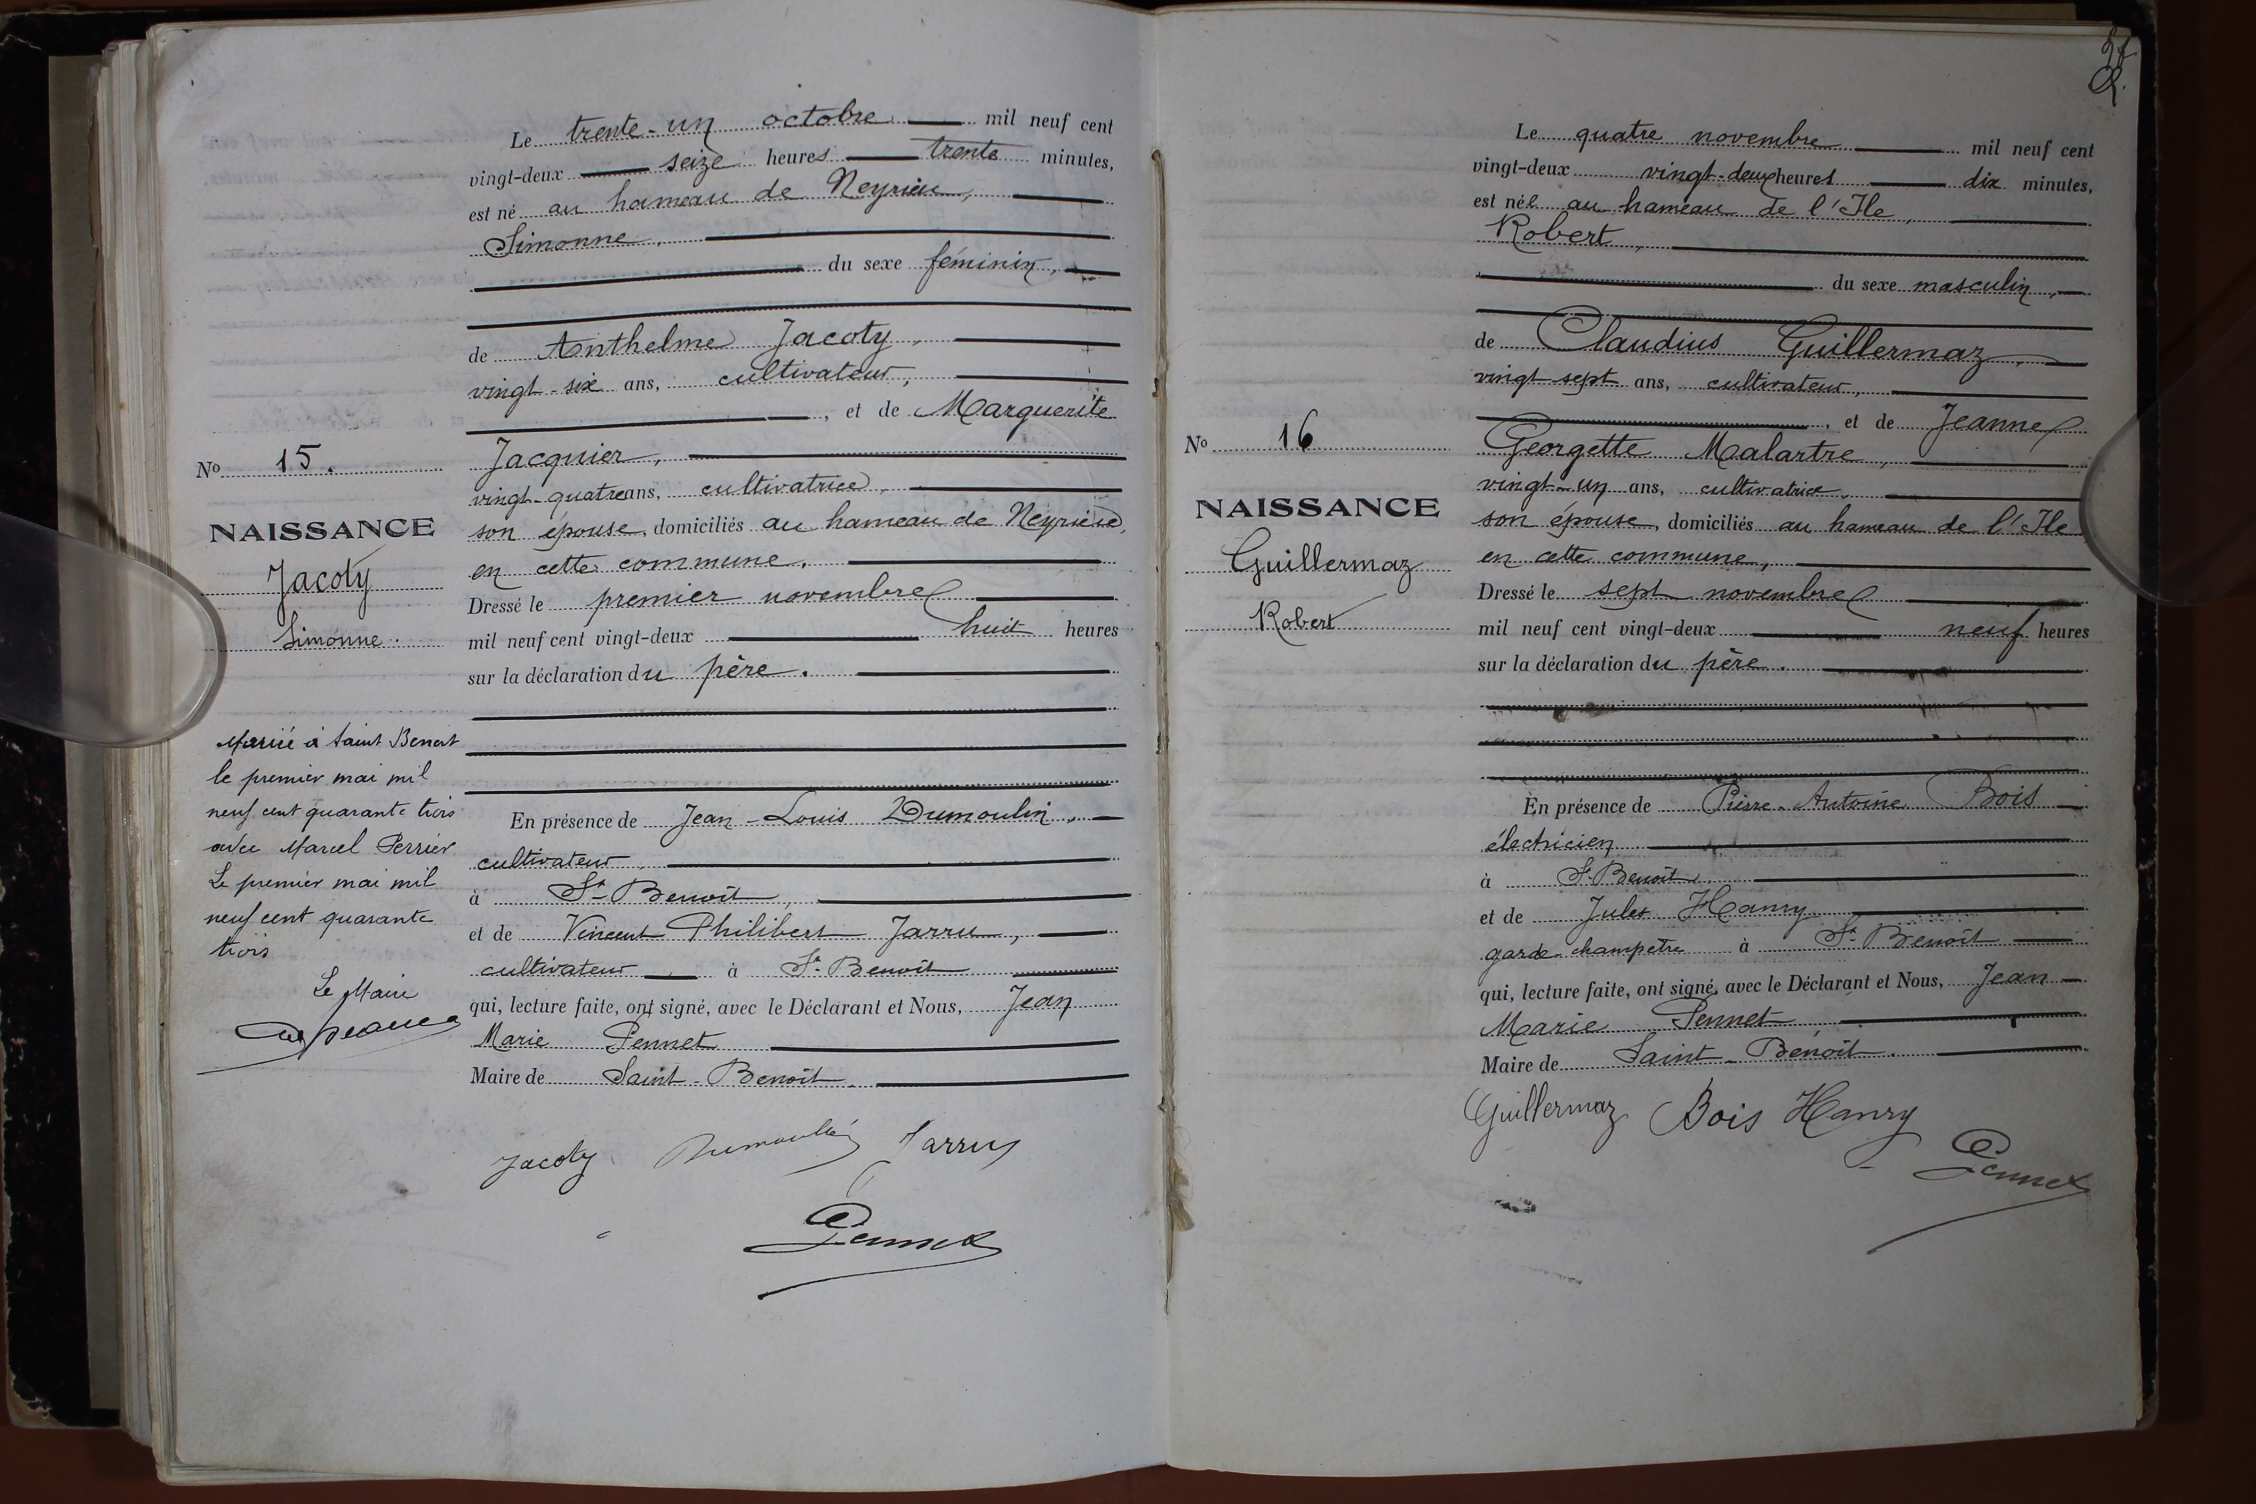 Le trente-un octobre mil neuf cent
vingt-deux seize heures trente minutes,
est né au hameau de Neyrieu,
Simonne,
du sexe féminin,
de Anthelme Jacoty,
vingt-six ans, cultivateur,
, et de Marguerite
Jacquier,
vingt-quatre ans, cultivatrice,
son épouse, domiciliés au hameau de Neyrieu,
en cette commune.
Dressé le premier novembre
mil neuf cent vingt-deux huit heures
sur la déclaration du père.
En présence de Jean-Louis Dumoulin,
cultivateur,
à St-Benoît,
et de Vincent Philibert Jarru,
cultivateur à St-Benoît
qui, lecture faite, ont signé, avec le Déclarant et Nous, Jean
Marie Pennet
Maire de Saint-Benoît.
Jacoty Dumoulin Jarru
Pennet
No 15.
NAISSANCE
Jacoty
Simonne.
Mariée à Saint Benoit
le premier mai mil
neuf cent quarante trois
avec Marcel Perrier
Le premier mai mil
neuf cent quarante
trois
Le Maire
Le quatre novembre mil neuf cent
vingt-deux vingt-deux heures dix minutes,
est né au hameau de l'Ile,
Robert,
du sexe masculin,
de Claudius Guillermaz,
vingt sept ans, cultivateur,
, et de Jeanne
Georgette Malartre,
vingt-un ans, cultivatrice,
son épouse, domiciliés au hameau de l'Ile
en cette commune,
Dressé le sept novembre
mil neuf cent vingt-deux neuf heures
sur la déclaration du père.
En présence de Pierre-Antoine Bois
électricien
à St-Benoît,
et de Jules Hanry
garde-champêtre à St-Benoît
qui, lecture faite, ont signé, avec le Déclarant et Nous, Jean
Marie Pennet
Maire de Saint-Benoît.
Guillermaz Bois Hanry
Pennet
No 16
NAISSANCE
Guillermaz
Robert